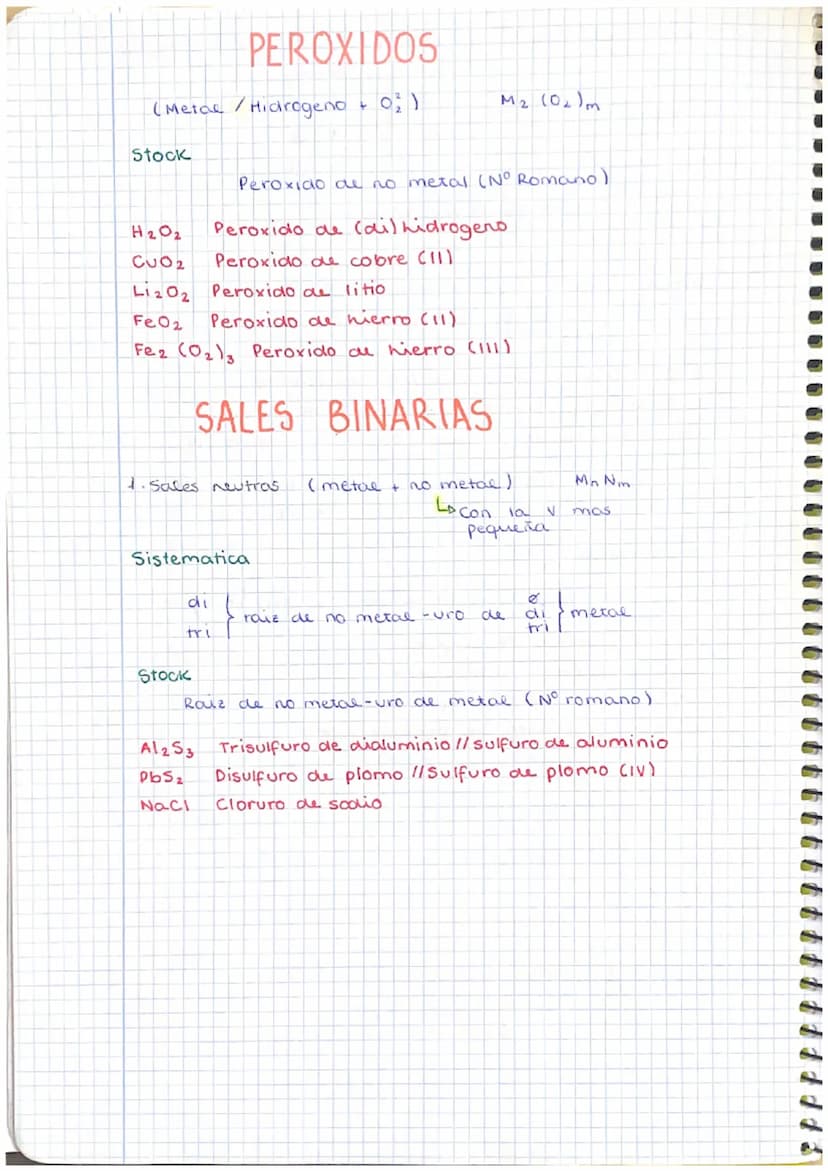 PEROXIDOS
(Metal / Hidrogeno + O₂²) M₂ (O₂)m
Stock
Peroxido de no metal (Nº Romano)
H₂O₂ Peroxido de (di)hidrogeno
CuO₂ Peroxido de cobre (II)
Li₂O₂ Peroxido de litio
FeO₂ Peroxido de hierro (II)
Fe₂ (O₂)₃ Peroxido de hierro (III)
SALES BINARIAS
1. Sales neutras (metal + no metal) Mn Nm
↳ con la v mas
pequeña
Sistematica
di ø
} raiz de no metal -uro de di } metal
tri tri
Stock
Raiz de no metal-uro de metal (Nº romano)
Al₂S₃ Trisulfuro de dialuminio // sulfuro de aluminio
PbS₂ Disulfuro de plomo // Sulfuro de plomo (IV)
NaCl Cloruro de sodio